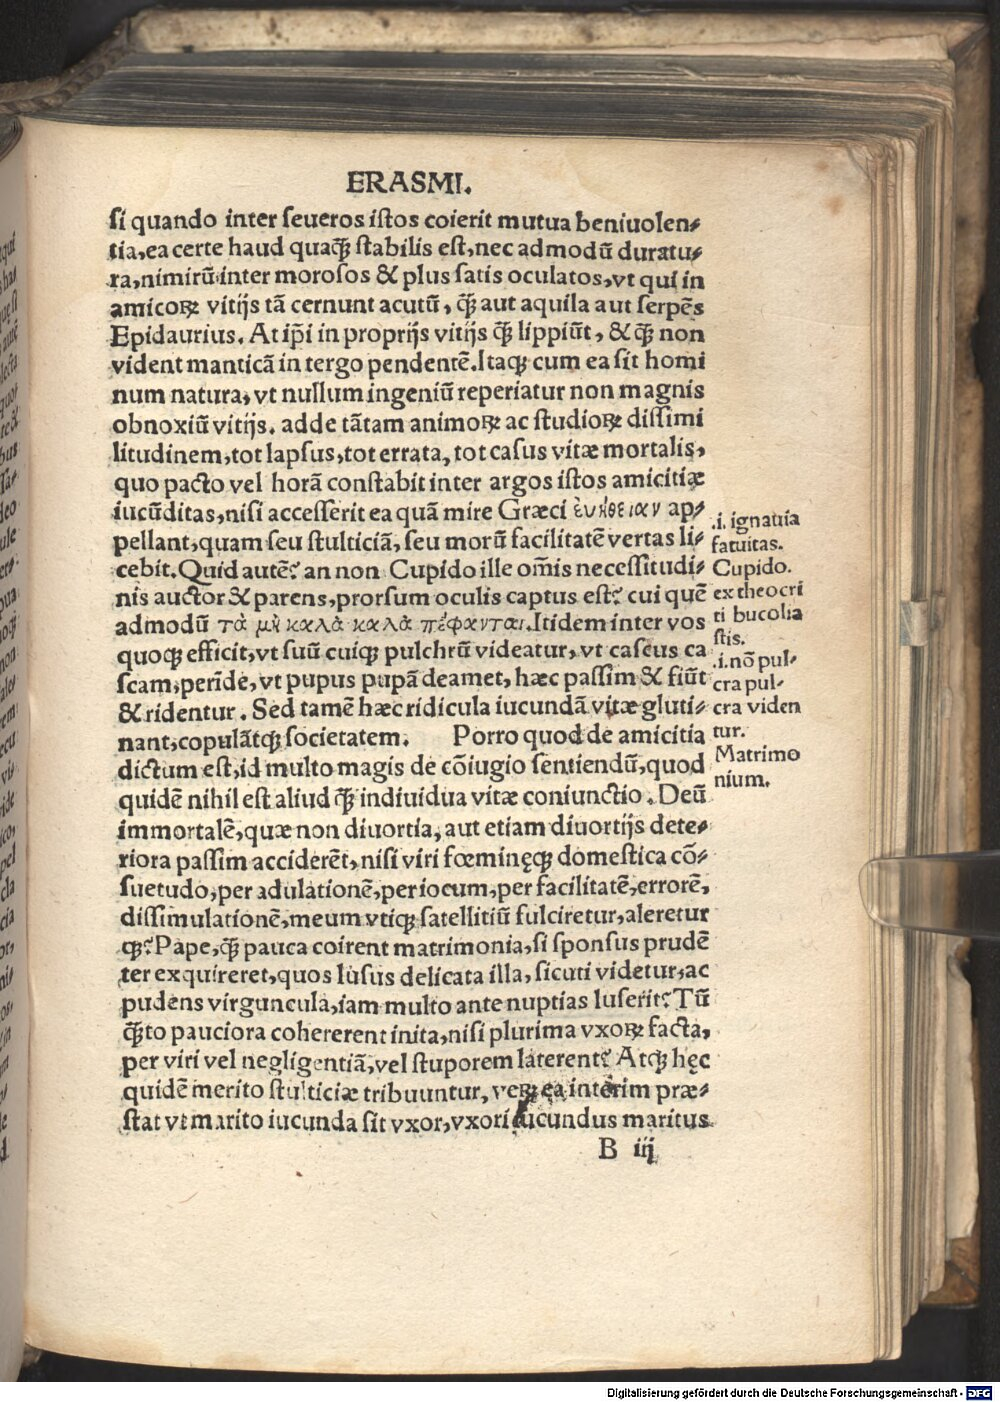 ERASMI.
si quando inter seueros istos coierit mutua beniuolen⸗
tia, ea certe haud quaꝙ̃ stabilis est, nec admodũ duratu⸗
ra, nimirũ inter morosos & plus satis oculatos, vt qui in
amicoꝝ vitijs tã cernunt acutũ, ꝙ̃ aut aquila aut serpẽs
Epidaurius. At ip̃i in proprijs vitijs ꝙ̃ lippiũt, & ꝙ̃ non
vident manticã in tergo pendentẽ. Itaqꝫ cum ea sit homi
num natura, vt nullum ingeniũ reperiatur non magnis
obnoxiũ vitijs. adde tãtam animoꝝ ac studioꝝ dissimi
litudinem, tot lapsus, tot errata, tot casus vitæ mortalis,
quo pacto vel horã constabit inter argos istos amicitiæ
iucũditas, nisi accesserit ea quã mire Græci ἐυήθειαν ap⸗
pellant, quam seu stulticiã, seu morũ facilitatẽ vertas li⸗
cebit. Quid autẽ? an non Cupido ille om̃is necessitudi⸗
nis auctor & parens, prorsum oculis captus est? cui quẽ
admodũ τὰ μὴ καλὰ καλὰ πέφανται. Itidem inter vos
quoqꝫ efficit, vt suũ cuiqꝫ pulchrũ videatur, vt cascus ca
scam, perĩde, vt pupus pupã deamet, hæc passim & fiũt
& ridentur. Sed tamẽ hæc ridicula iucundã vitæ gluti⸗
nant, copulãtqꝫ societatem. Porro quod de amicitia
dictum est, id multo magis de cõiugio sentiendũ, quod
quidẽ nihil est aliud ꝙ̃ indiuidua vitæ coniunctio. Deũ
immortalẽ, quæ non diuortia, aut etiam diuortijs dete⸗
riora passim acciderẽt, nisi viri fœminęqꝫ domestica cõ⸗
suetudo, per adulationẽ, per iocum, per facilitatẽ, errorẽ,
dissimulationẽ, meum vtiqꝫ satellitiũ fulciretur, aleretur
qꝫ? Pape, ꝙ̃ pauca coirent matrimonia, si sponsus prudẽ
ter exquireret, quos lusus delicata illa, sicuti videtur, ac
pudens virguncula, iam multo ante nuptias luserit? Tũ
ꝙ̃to pauciora cohererent inita, nisi plurima vxoꝝ facta,
per viri vel negligentiã, vel stuporem laterent? Atqꝫ hęc
quidẽ merito stulticiæ tribuuntur, veꝝ ea interim præ⸗
stat vt marito iucunda sit vxor, vxori iucundus maritus
B iij
.i. ignauia
fatuitas.
Cupido.
ex theocri
ti bucolia
stis.
.i. nõ pul⸗
cra pul⸗
cra viden
tur.
Matrimo
nium.
Digitalisierung gefördert durch die Deutsche Forschungsgemeinschaft - DFG